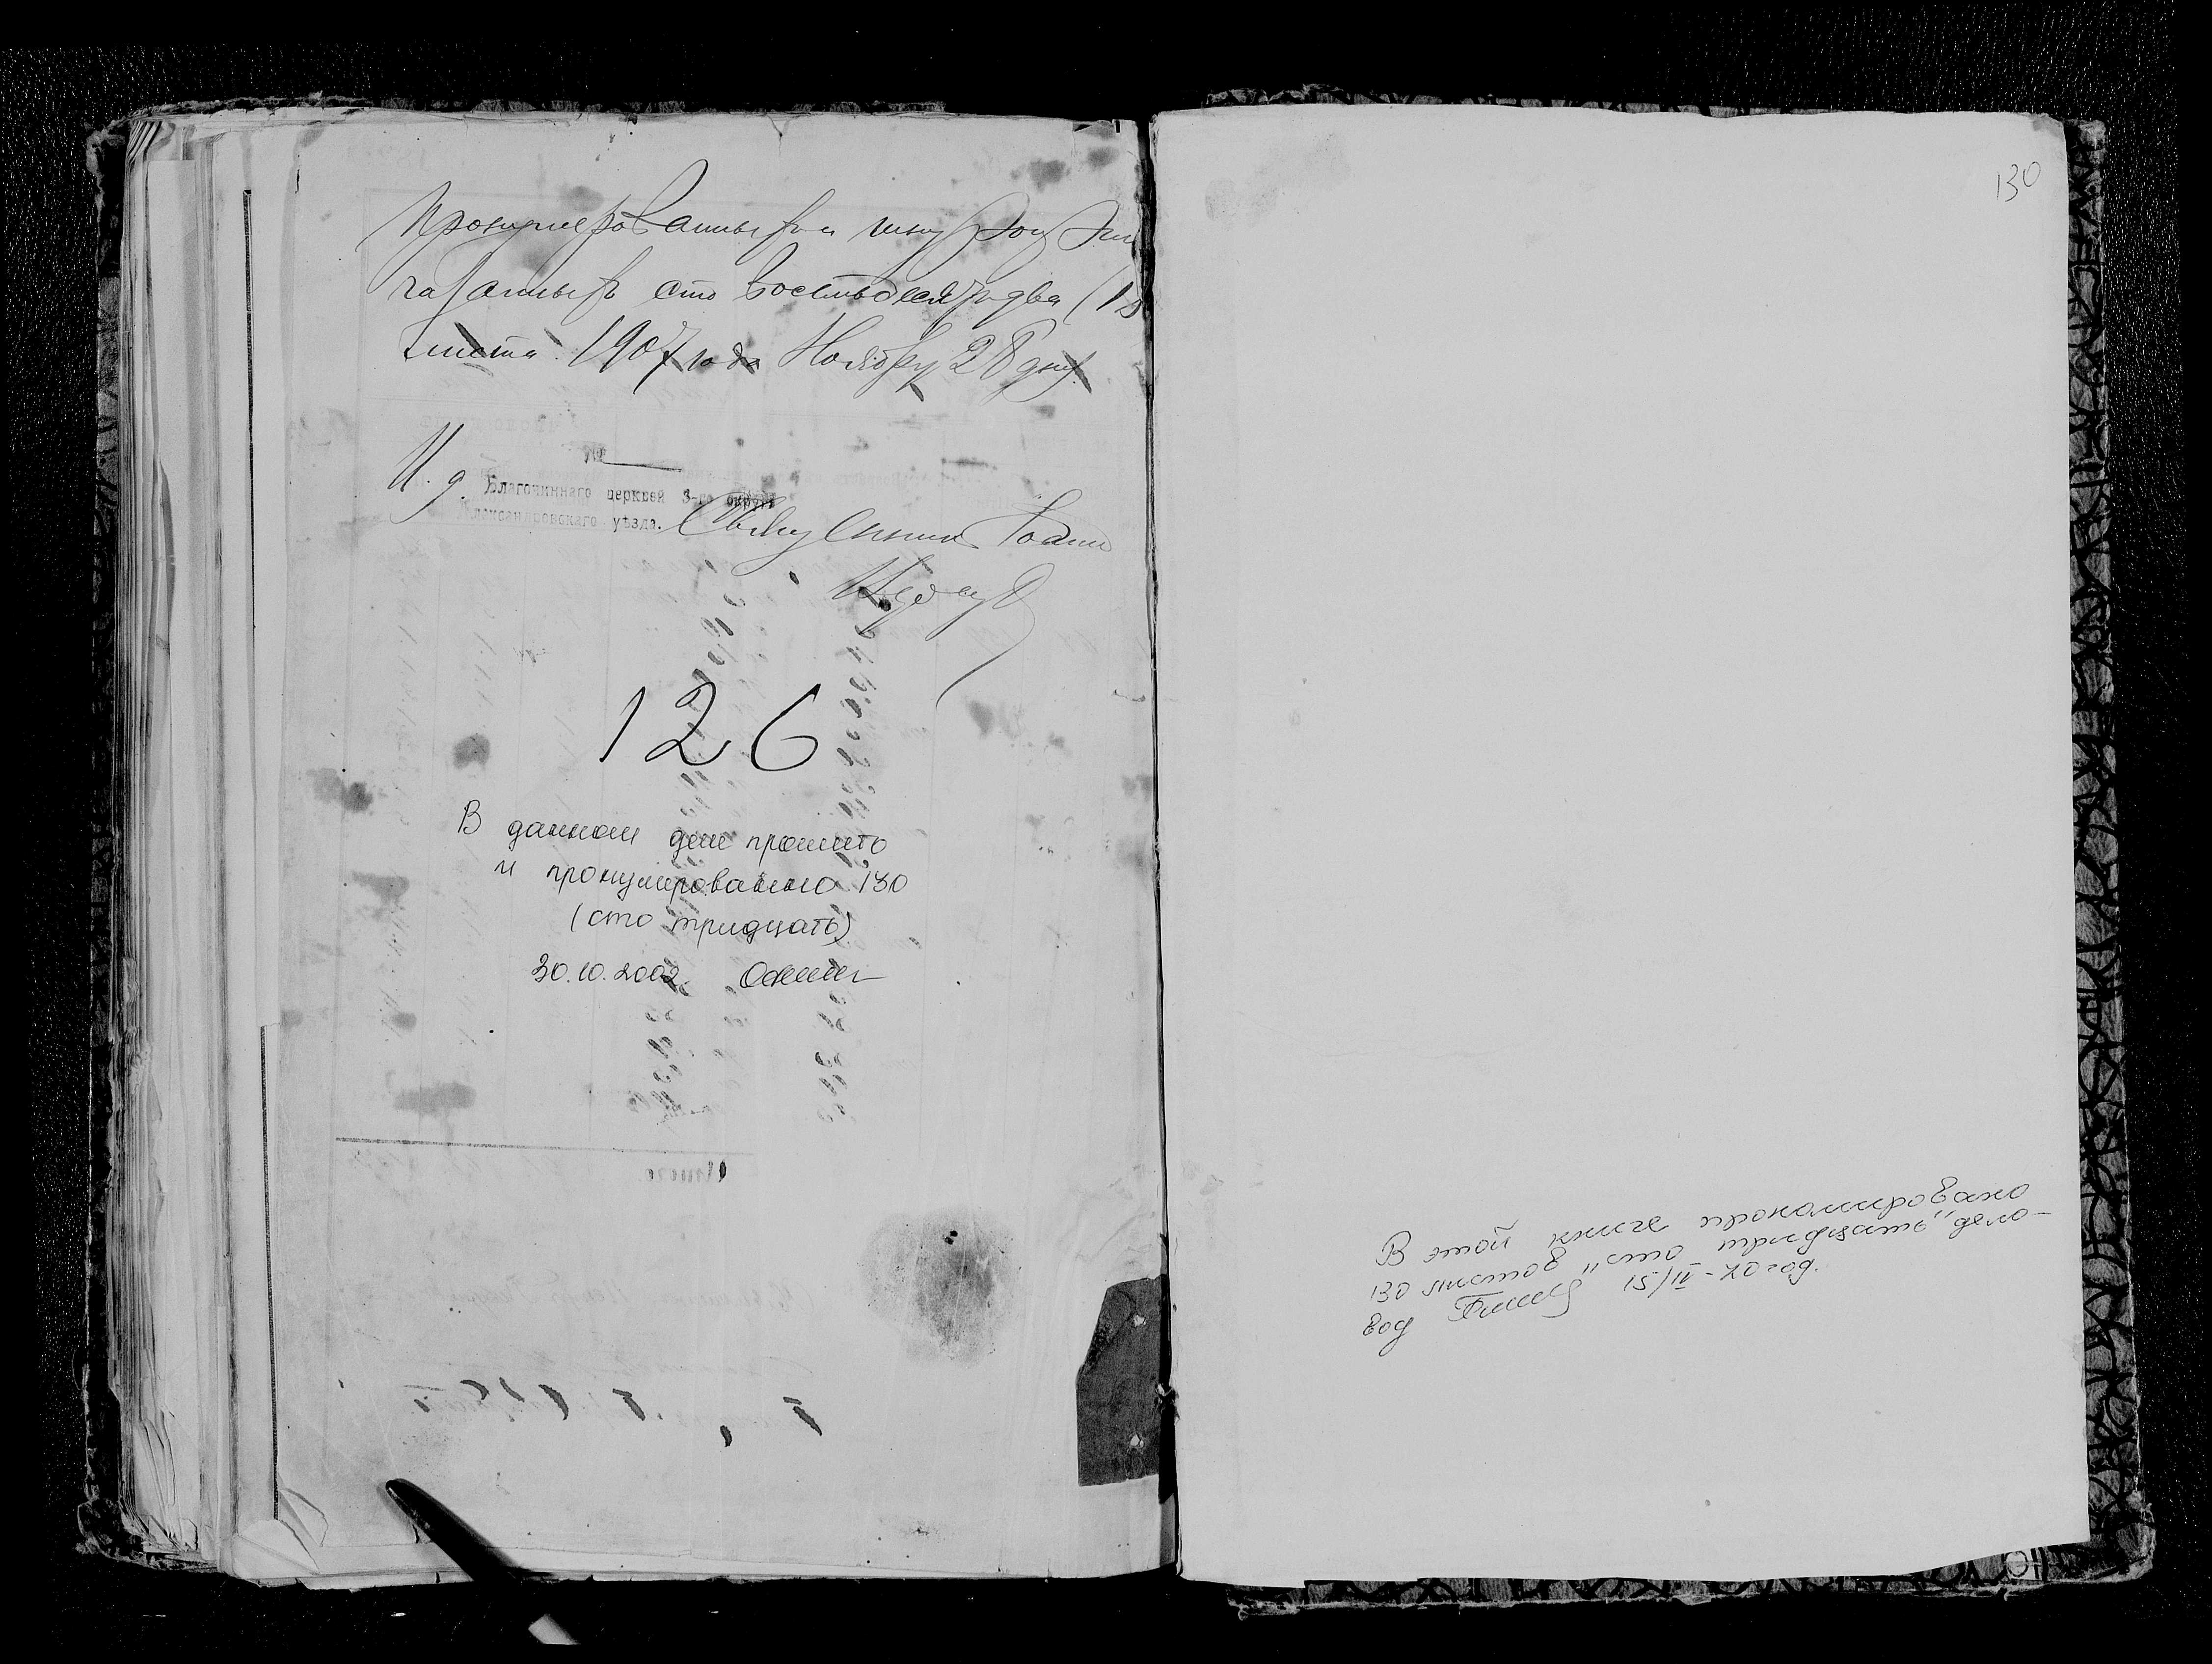 Пронумерованныхъ и шнур
чатанныхъ сто восемьдесятъ два (18
листа. 1907 года Ноября 28 дня.
№
И. д. Благочиннаго церквей 3-го округа
Александровскаго уѣзда. Священникъ Іоаннъ
126
В данном деле прошито
и пронумеровано 130
(сто тридцать)
30.10.2002
Итого
130
В этой книге прономировано
130 листов „сто тридцать" дело-
вод 15/IV-70 год.